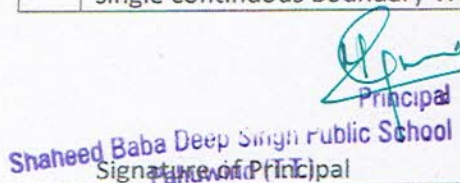 single continuous boundary
Principal
Shaheed Baba Deep Singh Public School
Signature of Principal